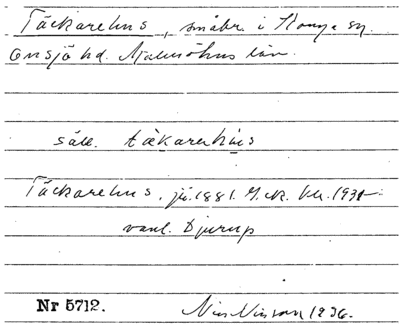 Täckarehus, småbr. i Konga sn.
Onsjö hd. Malmöhus län.
säll. tækarehús
Täckarehus, ju. 1881. G.ek. kbl. 1931
vanl. Djurup
Nr 5712.
Nils Nilsson 1936.